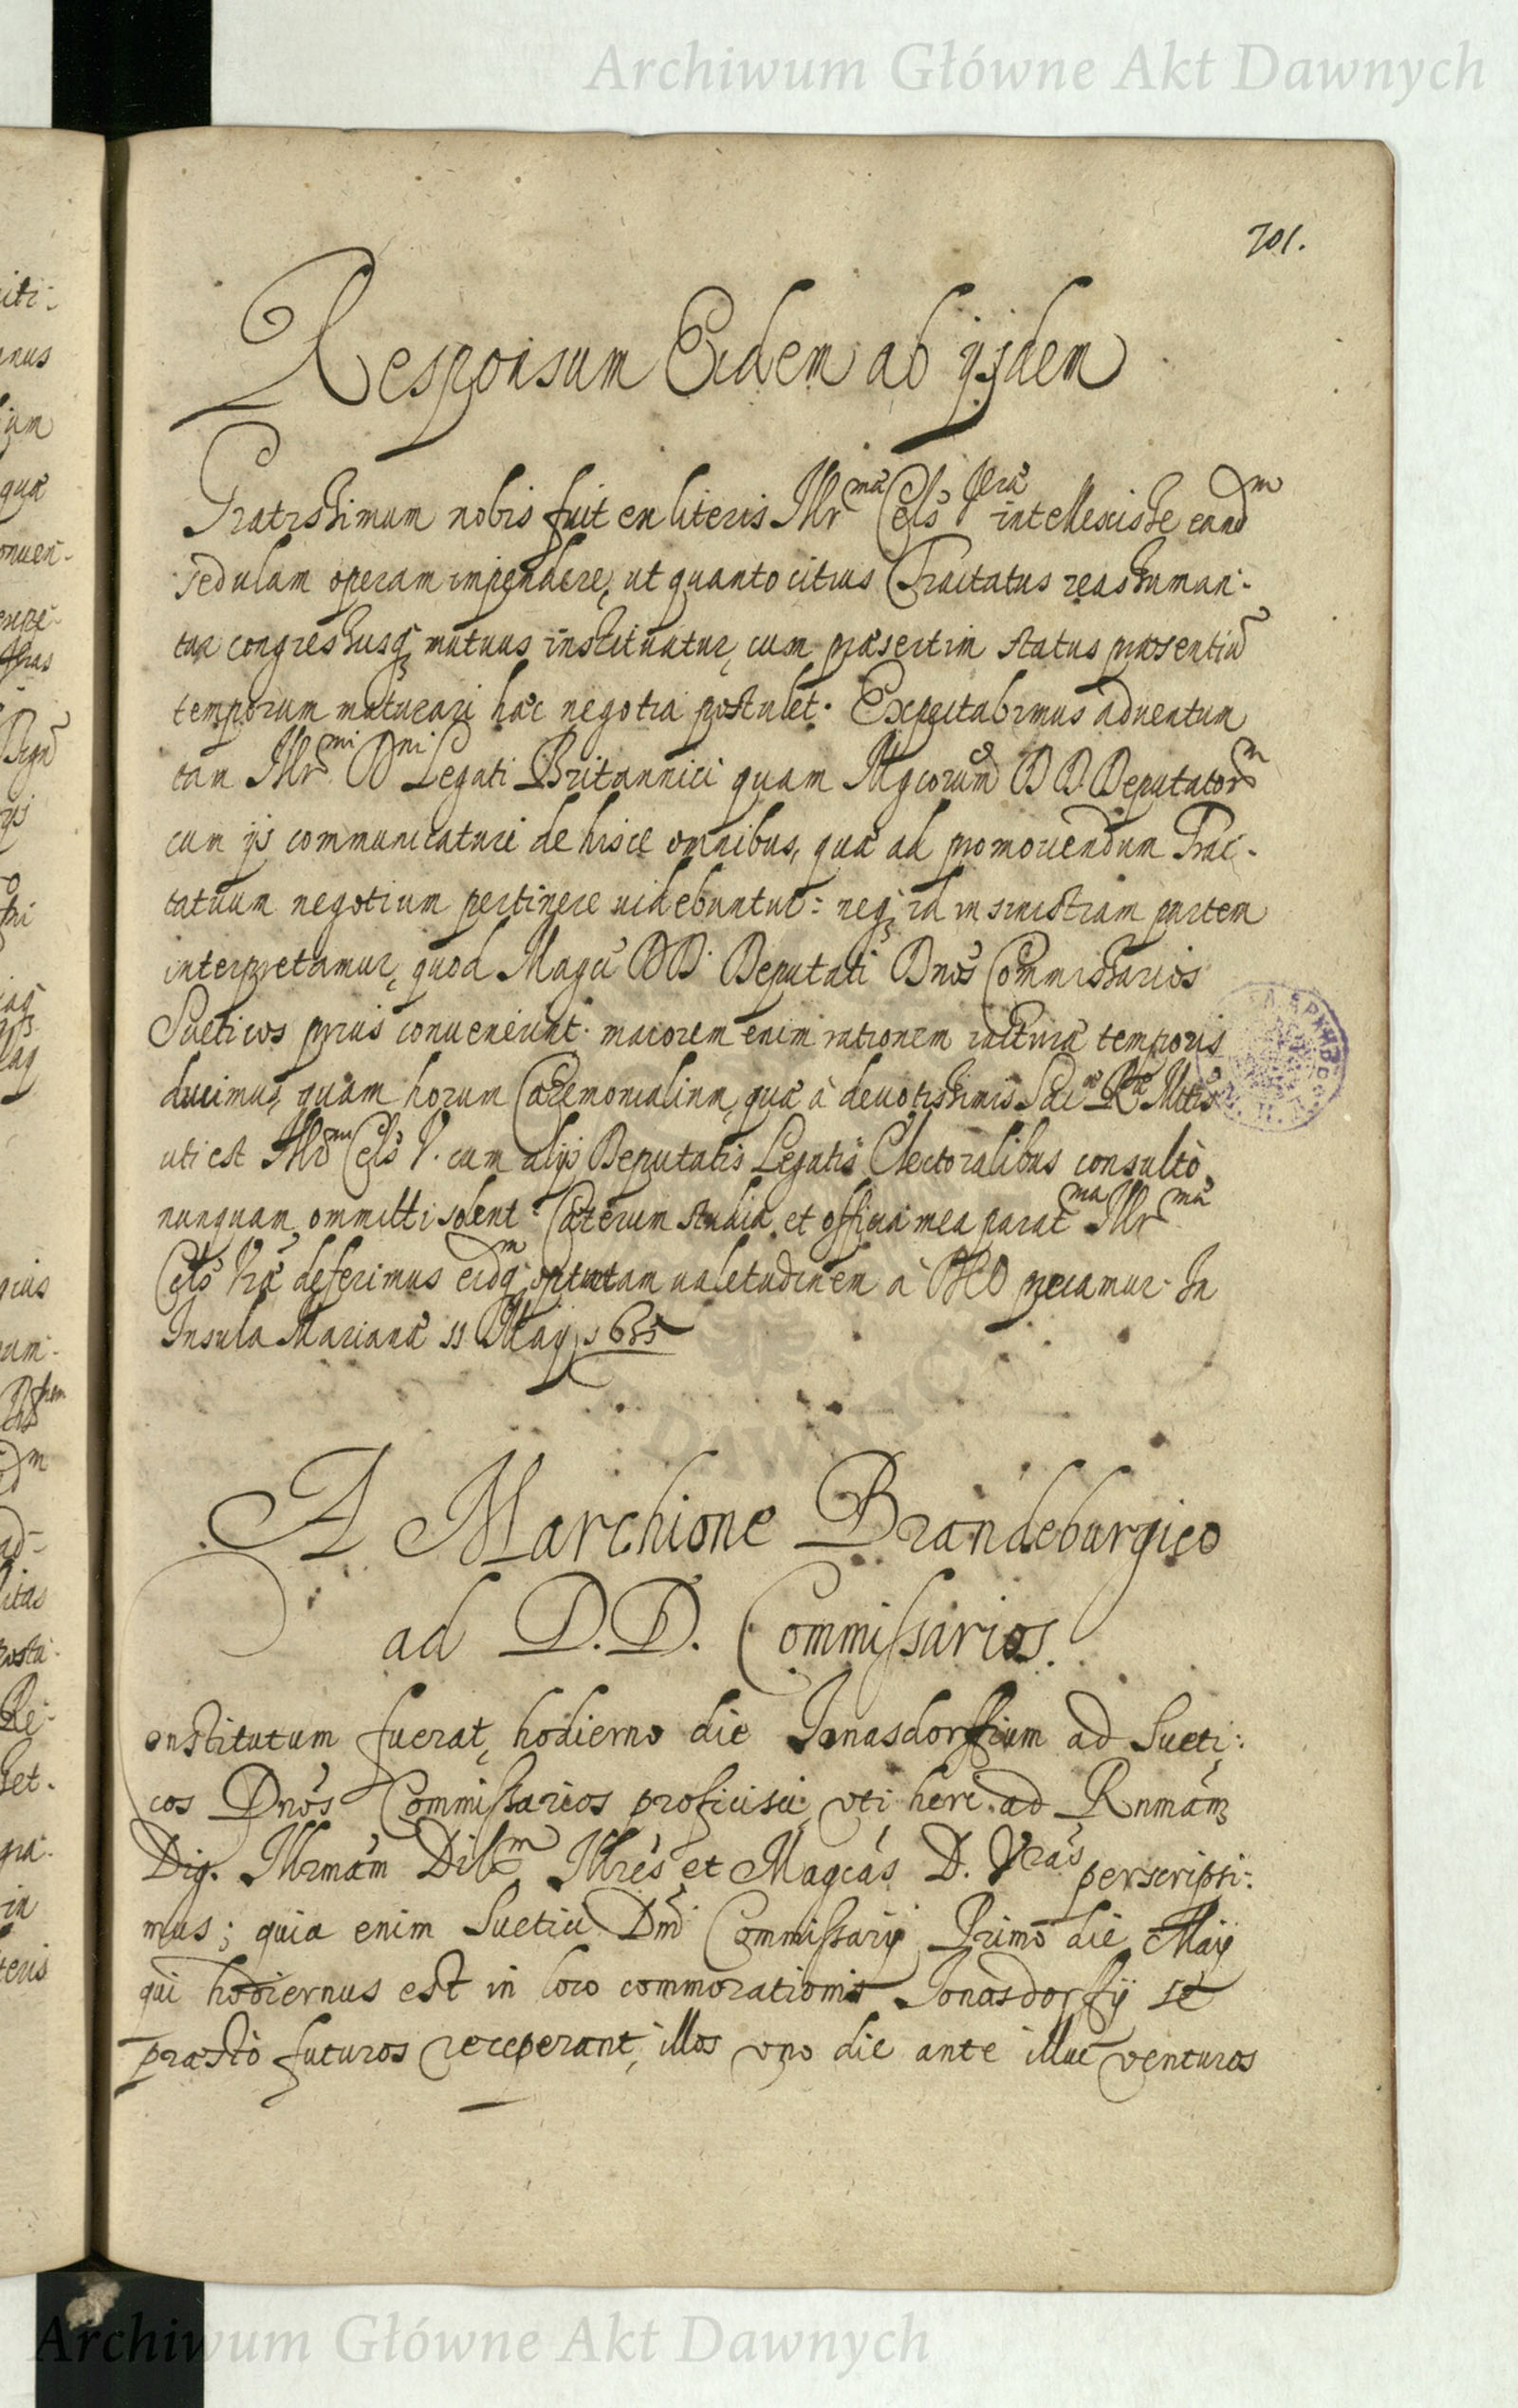 Archiwum Główne Akt Dawnych
701.
Responsum Eidem ab ijsdem
Gratissimum nobis fuit ex literis Illr^ma Cels Vra intellexisse eand^m
sedulam operam impendere, ut quanto citius Tractatus reassuman-
tur congressusq mutuus instituatur, cum præsertim status præsentiũ
temporum maturari hæc negotia postulet. Expectabimus aduentum
tam Illr^mi D^ni Legati Britannici quam Mgcorum DD. Deputator^m
cum ijs communicaturi de hisce omnibus, quæ ad promouendum Trac-
tatuum negotium pertinere uidebuntur: neq id in sinistram partem
interpretamur, quod Magci DD. Deputati Dnos Commissarios
Sueticos prius conuenerint. maiorem enim rationem iactura temporis
ducimus, quam horum Cæremonialium, quæ à deuotissimis Sac^æ R^æ Mtis
uti est Illr^m Cels V. cum alijs Deputatis Legatis Electoralibus consultò
nunquam ommitti solent. Cæterum studia et officia mea parat^ma Illr^ma
Cels Vræ deferimus eid^mq optatam ualetudinem à DEO precamur. In
Insula Mariana 11 Maij 1635
A Marchione Brandeburgico
ad D.D. Commissarios.
onstitutum fuerat, hodierno die Jonasdorffium ad Sueti:
cos Dnos Commissarios proficisci, vti heri ad Rnmam
Dig. Illrmam Dil^m Illres et Magcas D. Vras perscripsi:
mus; quia enim Suetici Dni Commissarij Primo die Maij
qui hodiernus est in loco commorationis Jonasdorffij se
præstò futuros receperant, illos vno die ante illuc venturos
DAWNYCH
Archiwum Główne Akt Dawnych